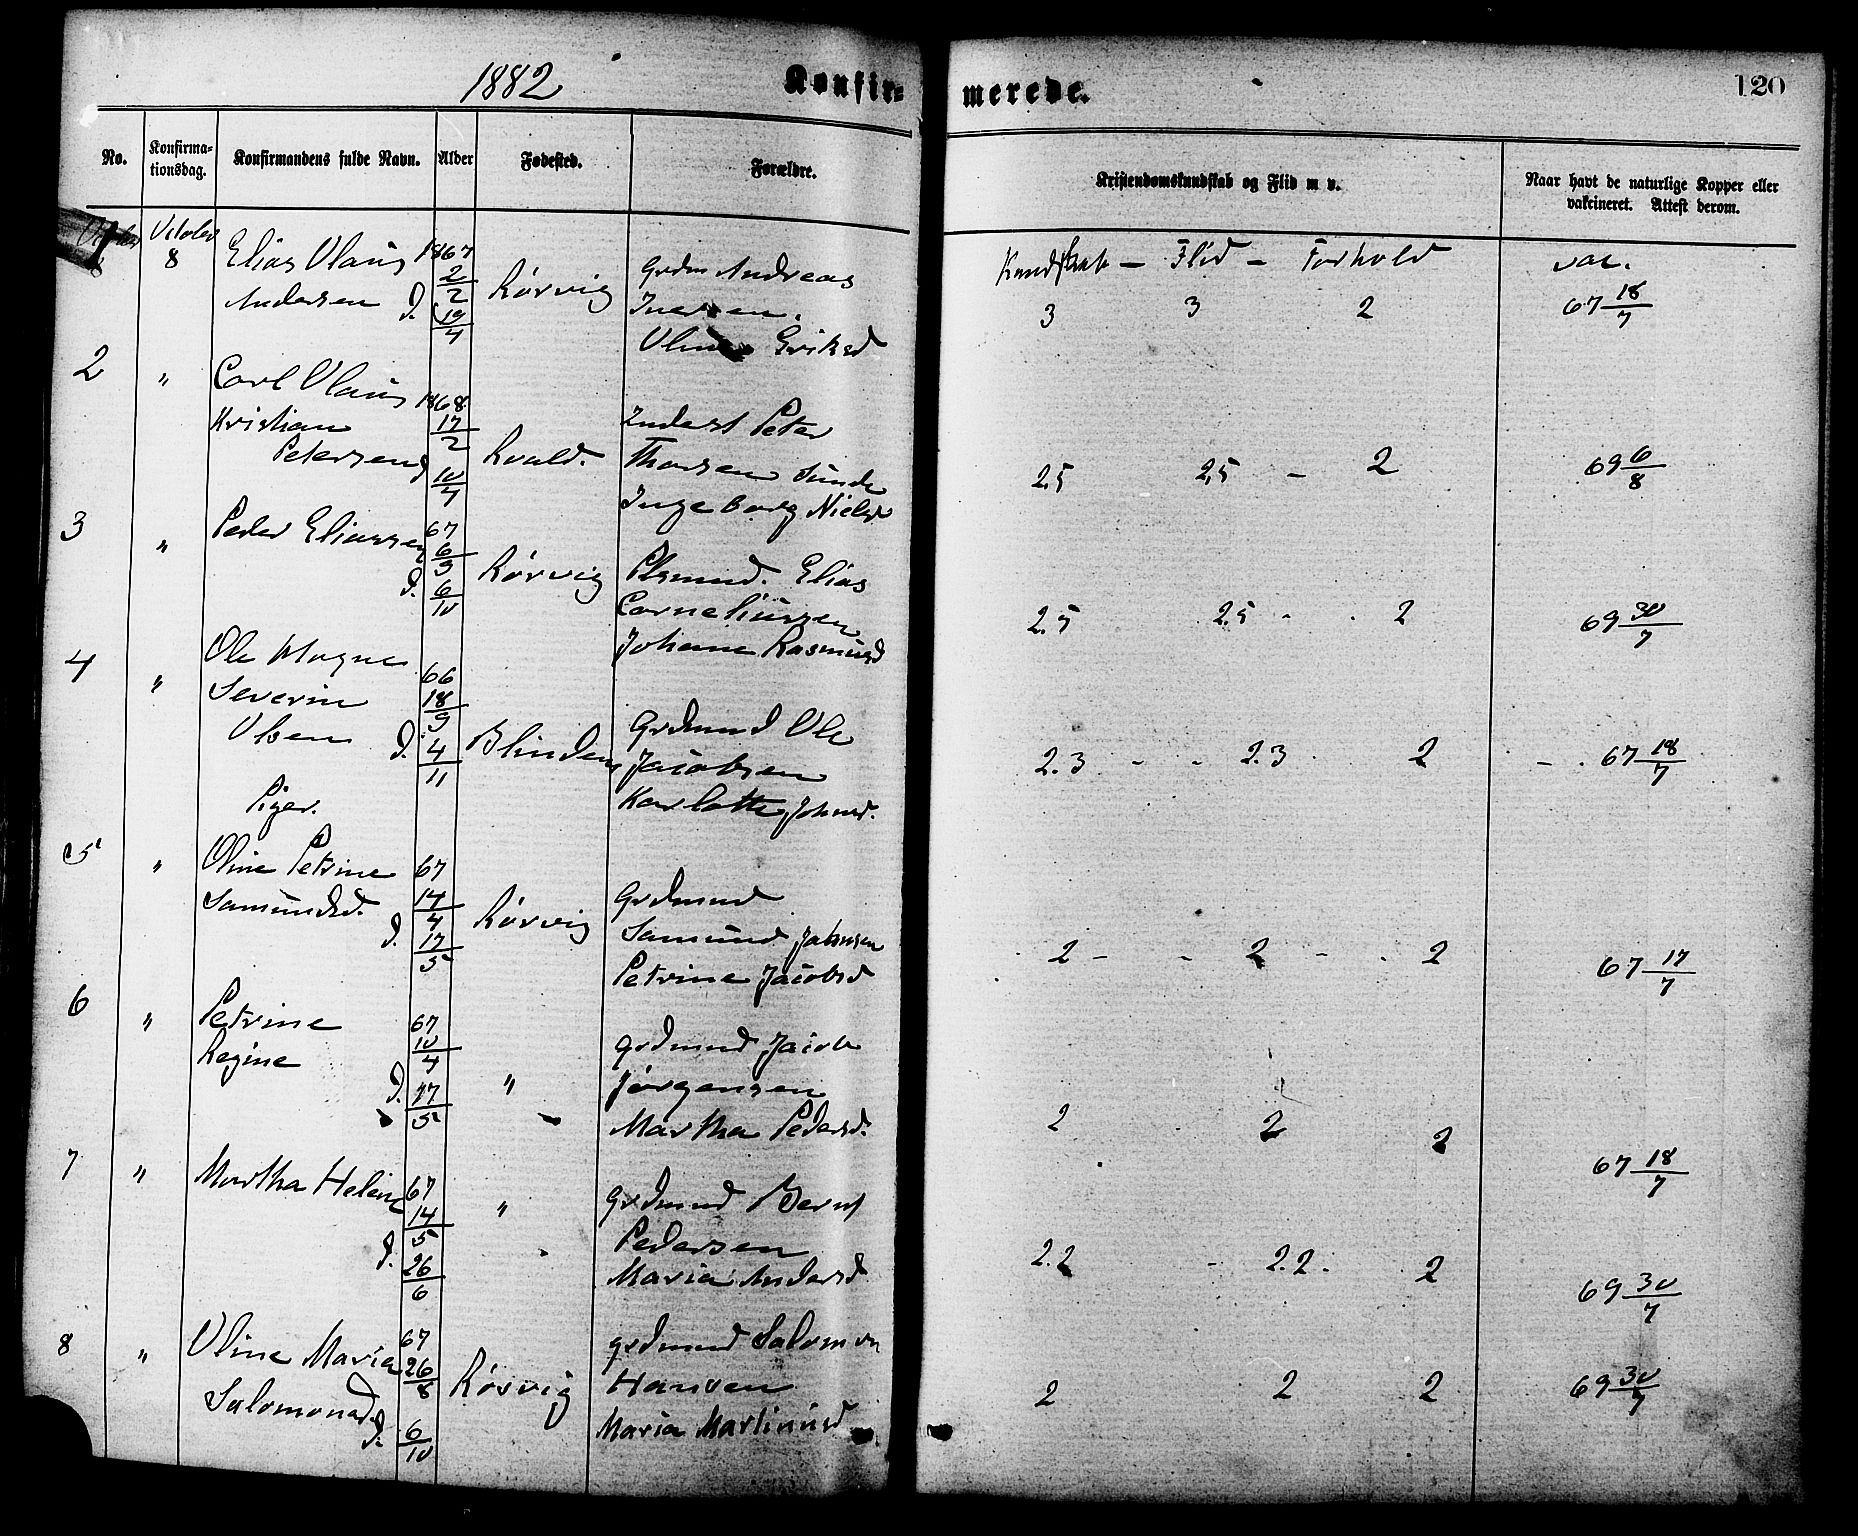 1882
Konfir=
merede.
120
No.
Konfirma-
tionsdag.
Konfirmandens fulde Navn.
Alder
Fødested.
Forældre.
Kristendomskundskab og Flid m v.
Naar havt de naturlige Kopper eller
vakcineret. Attest derom.
Kundskab – Flid – Forhold
vac.
1 Octobr 8
Elias Olaus
Andersen
1867
2/2
d. 19/4
Rørvig
Grdm Andreas
Iversen.
Eriksd
3 3 2 67 18/7
2 "
Carl Olaus
Kristian
Petersen
1868
17/2
d 10/4
Kvald.
Inderst Peter
Thorsen Sunde
Ingeborg Nielsd
2.5 2,5 – 2 69 6/8
3 "
Peder Eliassen
67
6/9
d. 6/10
Rørvig
Elias
Corneliussen
Johane Rasmusd
2.5 2.5 - . 2 69 30/7
4 "
Ole Magne
Severin
Olsen
66
18/9
d. 4/11
Blindens
Grdmnd Ole
Jacobsen
Karlotte Johnsd.
2.3 - - 2.3 . 2 - . 67 18/7
Piger.
5 "
Oline Petrine
Samundsd.
67
14/4
d. 17/5
Rørvig
Grdmnd
Samund Johnsen
Petrine Jacobsd
2 - - 2 - . 2 67 17/7
6 "
Petrine
Regine
67
10/4
d. 17/5
"
Grdmnd Jacob
Jørgensen
Martha Pedersd.
2 2 2 67 18/7
7 "
Martha Helene
67
14/5
d. 26/6
"
Grdmnd Bernt
Pedersen
Maria Andersd
2.2 - 2.2 . 2 69 30/7
8 "
Oline Maria
Salomonsd.
67
26/8
d. 6/10
Rørvig
grdmnd Salomon
Hansen
Maria Martinusd
2 2 2 69 30/7